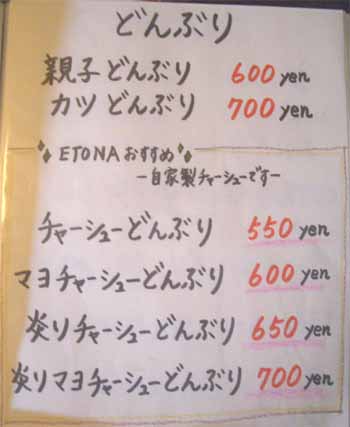 どんぶり
親子どんぶり 600 yen
カツどんぶり 700 yen
ETONAおすすめ
ー自家製チャーシューですー
チャーシューどんぶり 550 yen
マヨチャーシューどんぶり 600 yen
炎りチャーシューどんぶり 650 yen
炎りマヨチャーシューどんぶり 700 yen